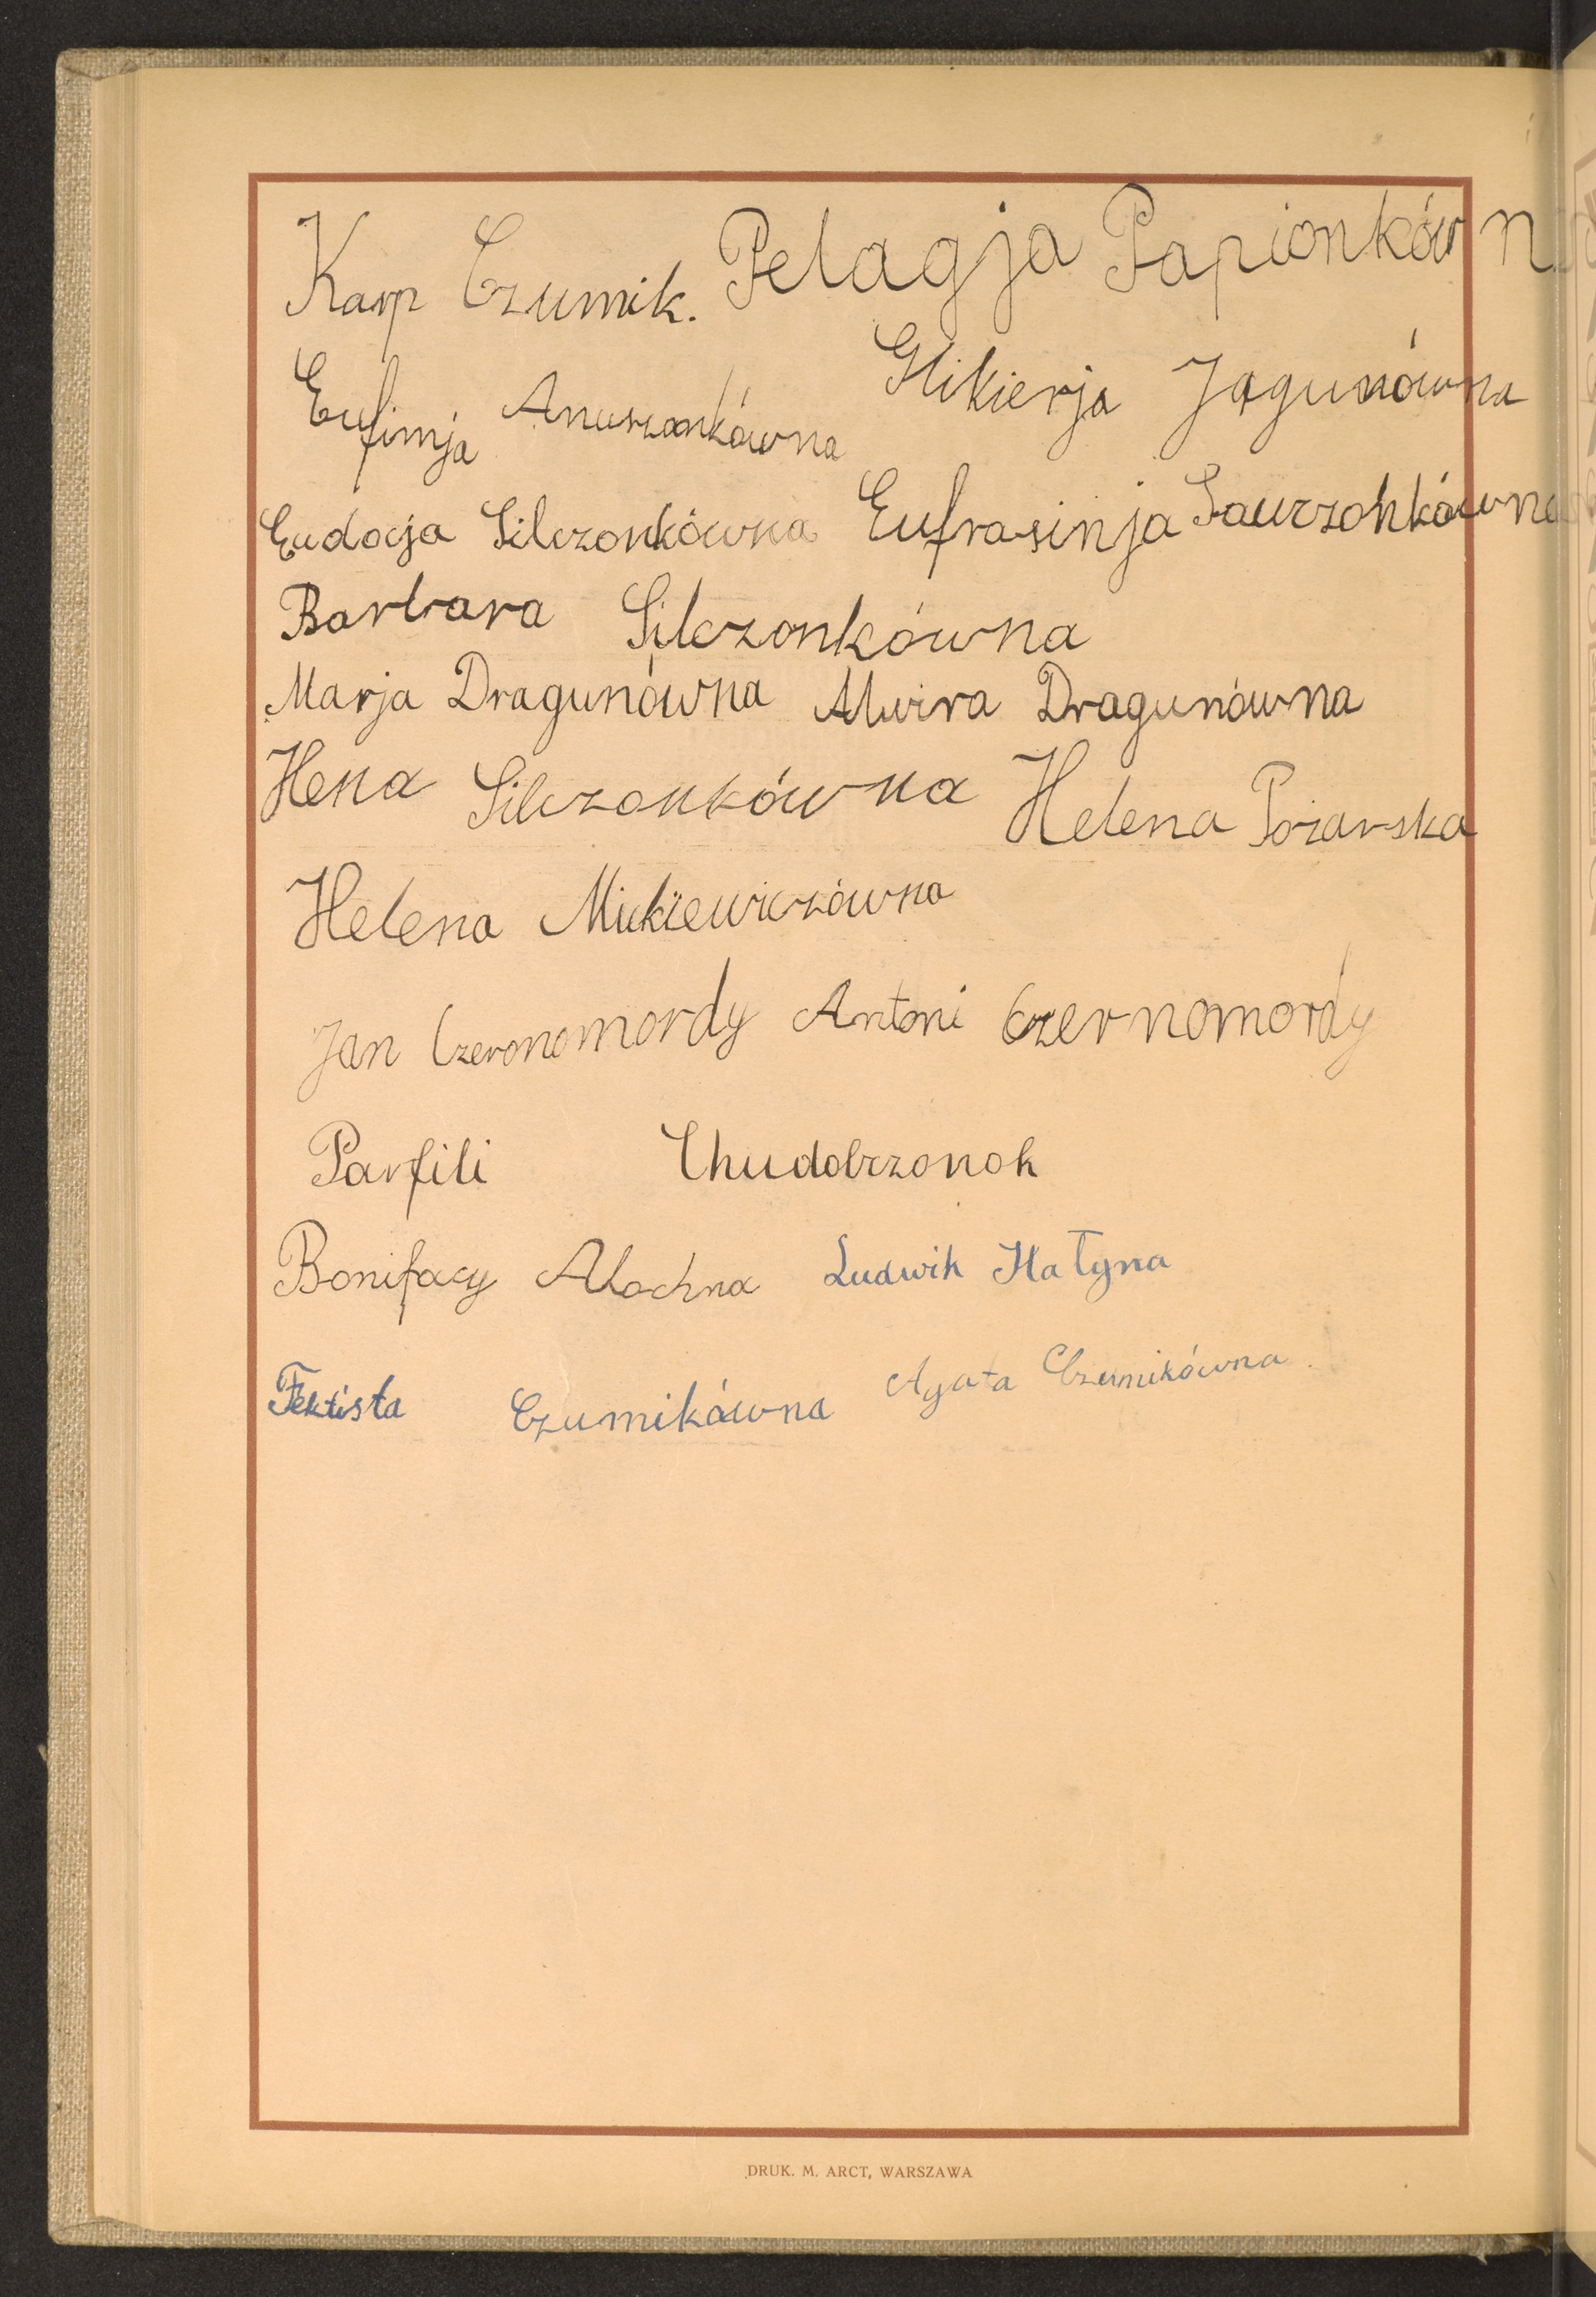 Karp Czumik. Pelagja Papionkówn
Eufimja Anuszonkówna Glikierja Jagunówna
Eudocja Silczonkówna Eufrasinja Sawrzonkówna
Barbara Silczonkówna
Marja Dragunówna Alwira Dragunówna
Hena Silczonkówna Helena Pożarska
Helena Mickiewiczówna
Jan Czernomordy Antoni Czernomordy
Parfili Chudobrzonok
Bonifacy Alochna Ludwik Hatyna
Fektista Czumikówna Agata Czumikówna.
DRUK. M. ARCT, WARSZAWA